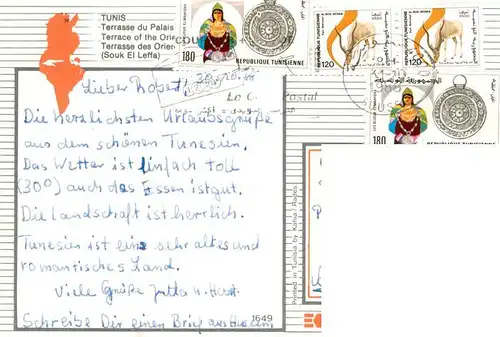 TUNIS
Terrasse du Palais
Terrace of the Orie
Terrasse des Orien
(Souk El Leffa)
180
REPUBLIQUE TUNISIENNE
120
120
Lieber Robert!
30.10.
Le C
Postal
Die herzlichsten Urlaubsgrüße
aus dem schönen Tunesien.
Das Wetter ist einfach toll
(30°) auch das Essen ist gut.
Die Landschaft ist herrlich.
Tunesien ist eine sehr altes und
romantisches Land.
Viele Grüße Jutta u.
Schreibe Dir einen Brief aus
1649
الجمهورية التونسية
180
REPUBLIQUE TUNISIENNE
Printed in Tunisia by Kahia Rades